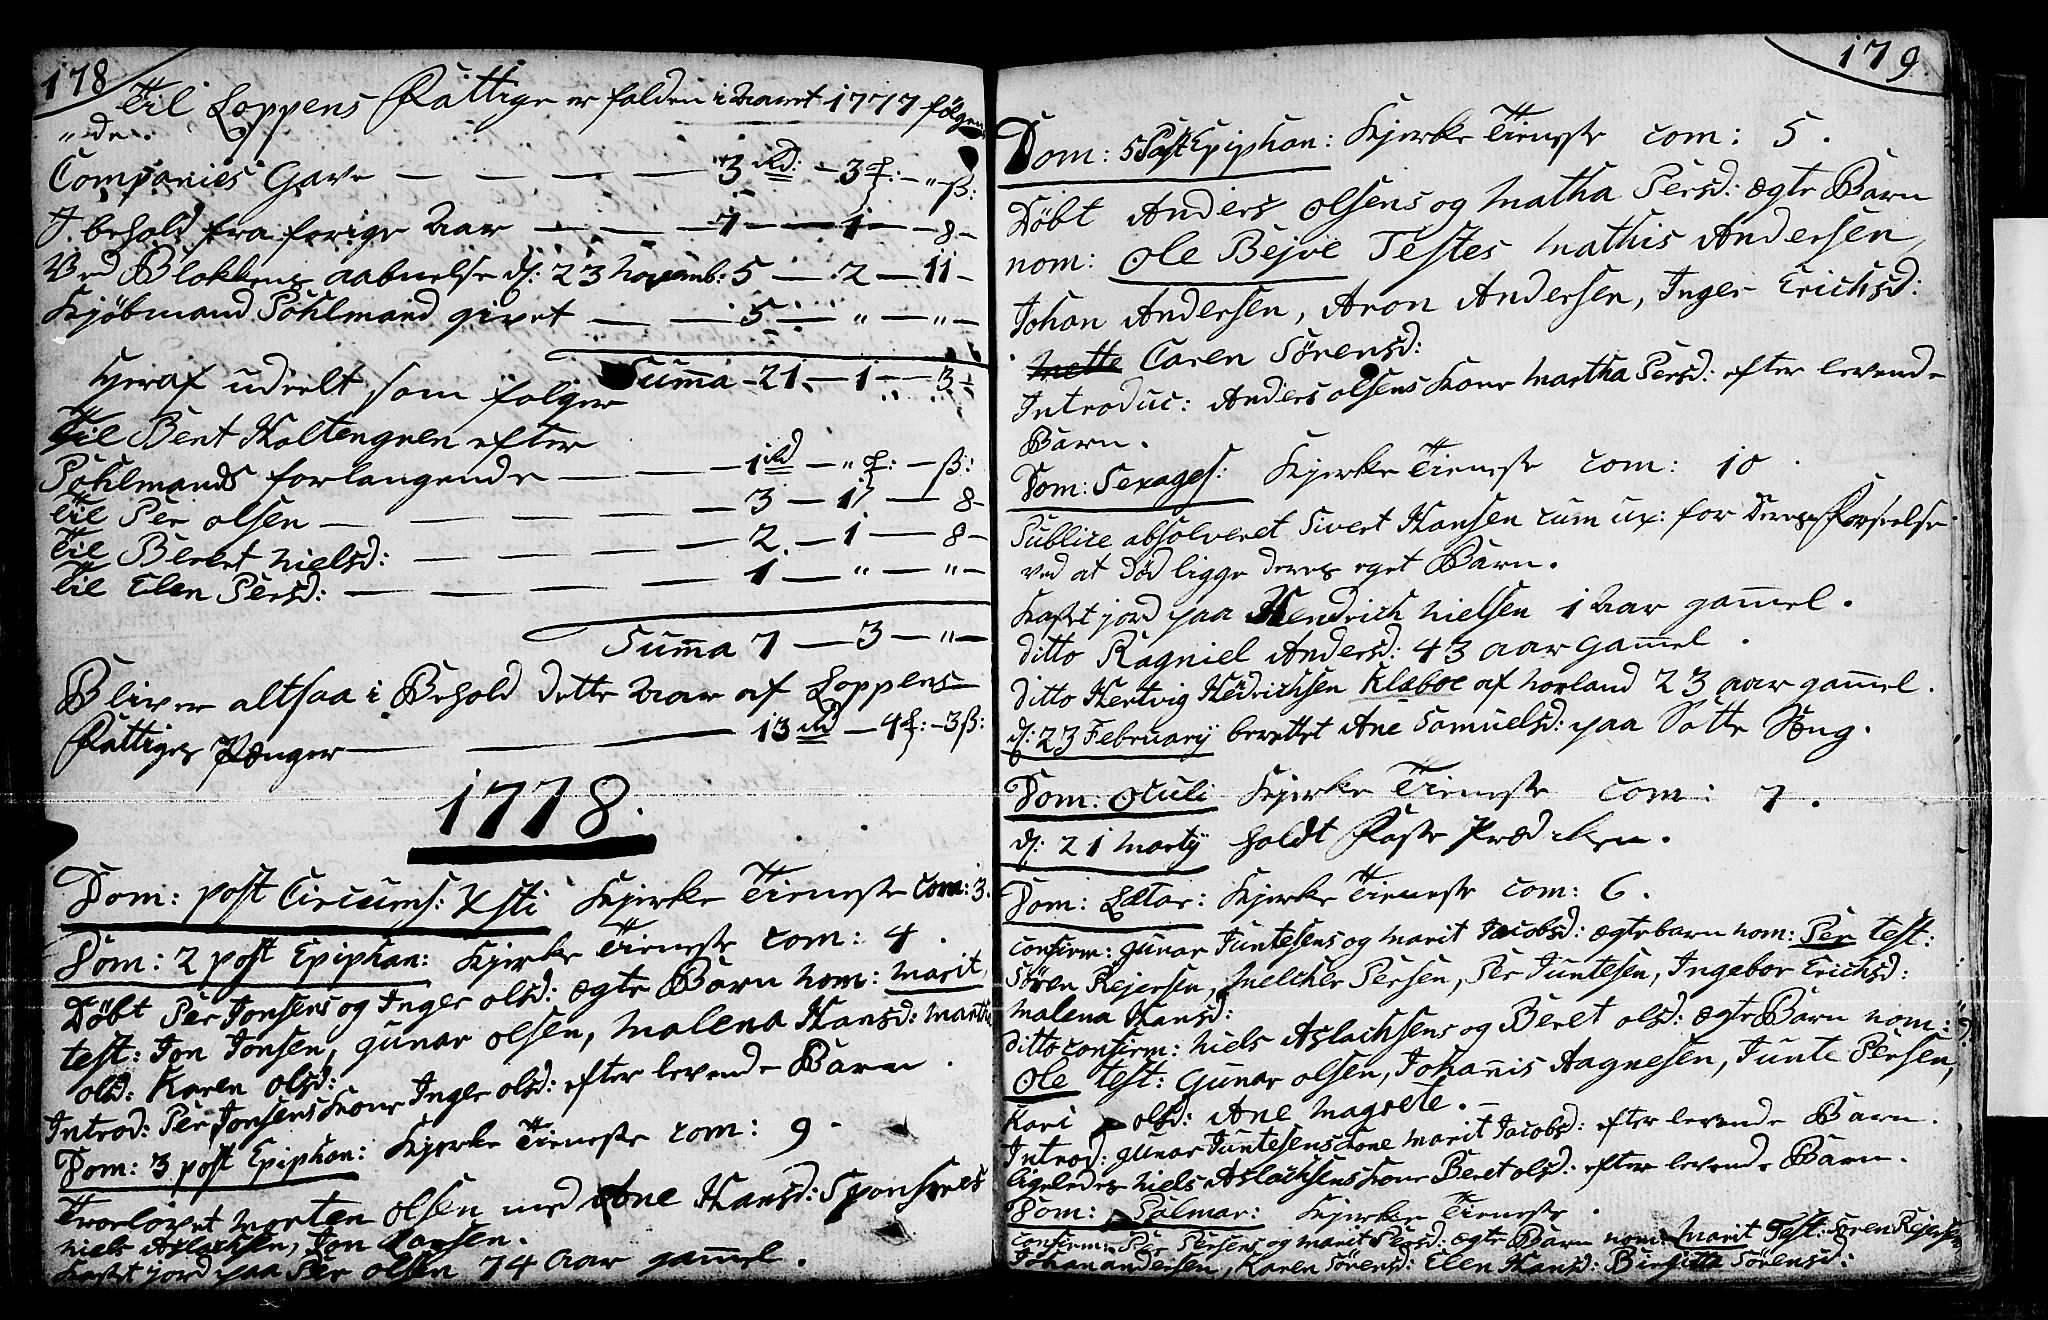 178
Til Loppens Fattige er falden i Aaret 1777 følgen
"de.
Companies Gave — — — — 3 Rd: — 3 ₰: — " ß:
I behold fra forige Aar — — — 7 — 1 — 8 —
Ved Blokkens aabnelse d: 23 Novemb: 5 — 2 — 11 —
Kjøbmand Pohlmand givet — — 5 — " — " —
Summa — 21 — 1 — 3 —
Hvoraf udeelt som følger
Til Bent Holtengnen efter
Pohlmands forlangende — — — 1 Rd — " ₰: — ß:
Til Per Olsen — — — — 3 — 1 — 8 —
Til Beret Nielsd: — — — — 2 — 1 — 8 —
Til Elen Persd: — — — — 1 — " — " —
Summa 7 — 3 — " —
Bliver altsaa i Behold dette Aar af Loppens
Fattiges Penger — — — 13 Rd — 4 ₰: — 3 ß:
1778.
Dom: post Circums: Xsti Kjerke Tieneste com: 3.
Dom: 2 post Epiphan: Kjerke Tieneste com: 4.
Døbt Per Jonsens og Inger Olsd: ægte Barn nom: Marit,
test: Jon Jonsen, Gunar Olsen, Malena Hansd: Martha
Olsd: Karen Olsd:
Introd: Per Jonsens Kone Inger Olsd: efter levende Barn.
Dom: 3 post Epiphan: Kjerke Tieneste com: 9.
Troelovet Morten Olsen med Ane Hansd: Sponsores
Niels Aslachsen, Jon Larsen.
Kastet jord paa Per Olsen 74 Aar gam̄el.
179.
Dom: 5 Post Epiphan: Kjerke Tieneste com: 5.
Døbt Anders Olsens og Matha Persd: ægte Barn
nom: Ole Bejve Testes Mathis Andersen,
Johan Andersen, Aron Andersen, Inger Erichsd:
Mette Caren Sørensd:
Introduc: Anders Olsens Kone Martha Persd: efter levende
Barn.
Dom: Sexages: Kjerke Tieneste com: 10.
Publice absolveret Sivert Hansen cum ux: for Deres Forseelse
ved at Død ligge deres eget Barn.
Kastet jord paa Hendrich Nielsen 1 Aar gam̄el.
ditto Ragniel Andersd: 43 aar gam̄el.
ditto Hertvig Hedrichsen Klæboe af Norland 23 aar gam̄el.
d: 23 February berettet Ane Samuelsd: paa Sotte Seng.
Dom: Oculi Kjerke Tieneste com: 7.
d: 21 Martij holdt Faste Prædiken.
Dom: Lætar: Kjerke Tieneste com: 6.
Confirm: Gunar Juntesens og Marit Jacobsd: ægte barn nom: Per test:
Søren Rejersen, Melcher Persen, Per Juntesen, Ingebor Erichsd:
Malena Hansd:
ditto confirm: Niels Aslachsens og Beret Olsd: ægte Barn nom:
Ole test: Gunar Olsen, Johan̄is Aagnesen, Junte Persen,
Kari Olsd: Ane Magrete. —
Introd: Gunar Juntesens Kone Marit Jacobsd: efter levende Barn.
ligeledes Niels Aslachsens Kone Beret Olsd: efter levende Barn.
Dom: Palmar: Kjerke Tieneste.
Confirm: Per Persens og Marit Persd: ægte Barn nom: Marit Test: Søren Rejersen
Johan Andersen, Karen Sørensd: Elen Hansd: Birgitta Sørensd: